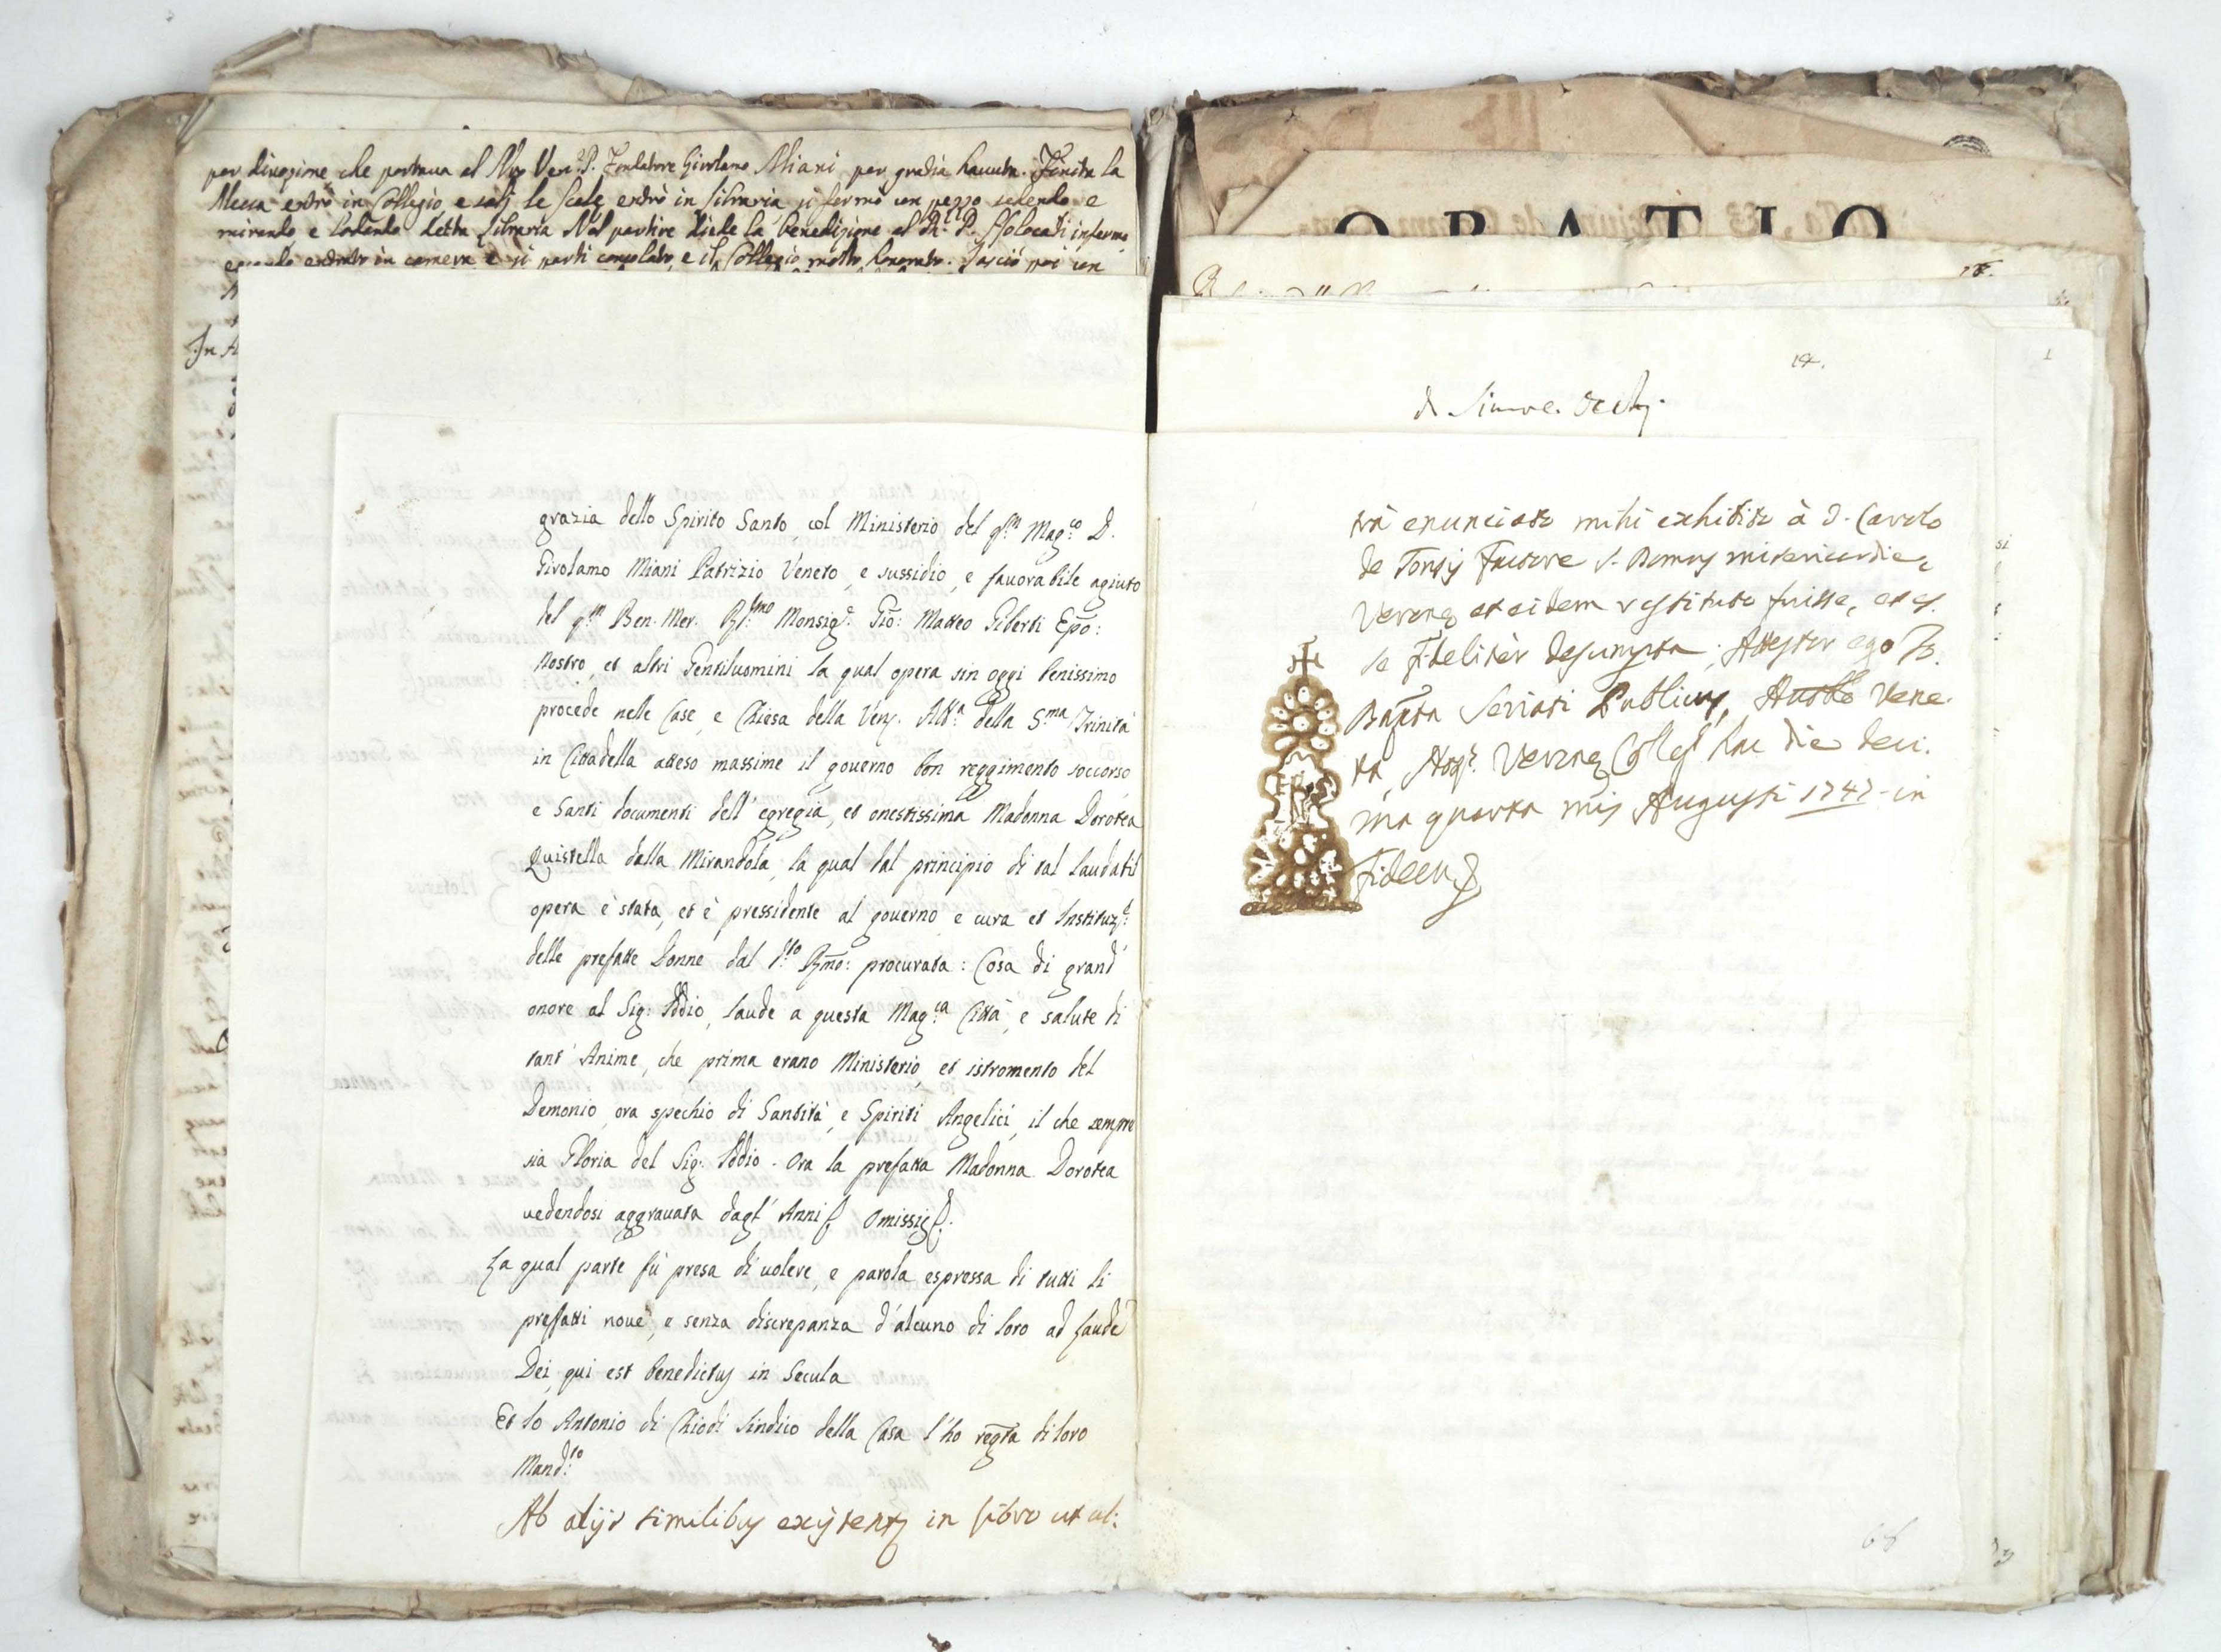 per divozione che portava al Ven. P. Fondatore Girolamo Miani per gradia havuta. Finita la
Messa entrò in Collegio, e salì le scale entrò in libraria si fermò un pezzo sedendo e
mirando e lodando detta libraria Nel partire diede la benedizione al infermo
entrato in camera e si partì consolato, e il Collegio molto honorato. Lasciò poi un
In A
ORATIO
18.
14.
1
grazia dello Spirito Santo, col Ministerio del qm Mag.co D.
Girolamo Miani Patrizio Veneto, e sussidio, e favorabile agiuto
del qm Ben. Mer. R.mo Monsig.r Gio: Matteo Giberti Epo:
nostro, et altri Gentiluomini la qual opera sin oggi benissimo
procede nelle Case, e Chiesa della Ven. della S.ma Trinità
in Cittadella atteso massime il governo bon reggimento soccorso
e Santi documenti dell' egregia, et onestissima Madonna Dorotea
Quistella dalla Mirandola, la qual dal principio di tal laudabil
opera è stata, et è pressidente al governo e cura et Instituz.e
delle prefatte Donne dal d.to Rmo: procurata: Cosa di grand'
onore al Sig: Iddio, laude a questa Mag.ca Città, e salute di
tant' Anime, che prima erano Ministerio, et istromento del
Demonio, ora spechio di Santità, e Spiriti Angelici, il che sempre
sia Gloria del Sig: Iddio. Ora la prefatta Madonna Dorotea
vedendosi aggravata dagl' Anni Omissis
La qual parte fù presa di volere, e parola espressa di tutti li
prefatti nove, e senza discrepanza d'alcuno di loro ad laude
Dei qui est benedictus in Secula
Et Io Antonio di Chiodi Sindico della Casa l'ho regta di loro
Mand.to
Ab alijs similibus existentz in libro ut ul:
trà enunciato mihi exhibito à D. Carolo
de Tonsis Factore S. Domus misericordie
Verone, et eidem restituto fuisse, et es-
se fideliter desumpta; Attestor ego Jo.
Bapta Seriati Publicus, Autte Vene-
ta, Not. Verone Coleg. hac die deci-
ma quarta mis Augusti 1747 - in
Fidem
68